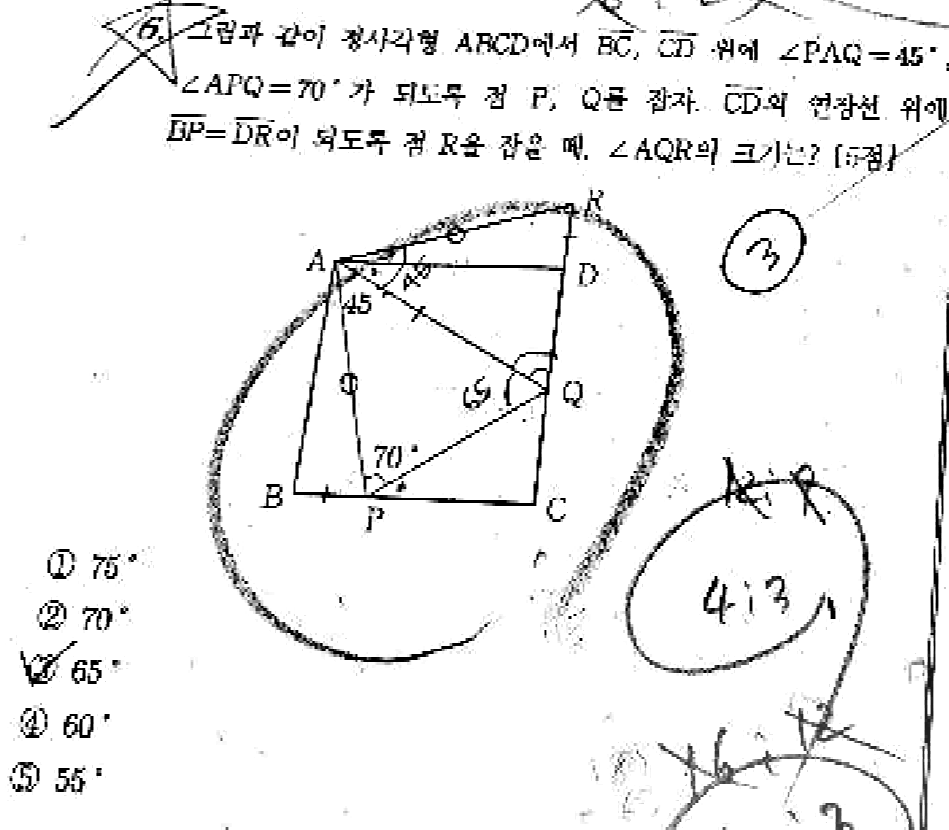 6. 그림과 같이 정사각형 ABCD에서 BC, CD 위에 ∠PAQ=45°,
∠APQ=70°가 되도록 점 P, Q를 잡자. CD의 연장선 위에
BP=DR이 되도록 점 R을 잡을 때, ∠AQR의 크기는? [5점]
R
3
A
D
45
45
Q
65
70°
B
P
C
① 75°
② 70°
③ 65°
④ 60°
⑤ 55°
4:3
16:12
3